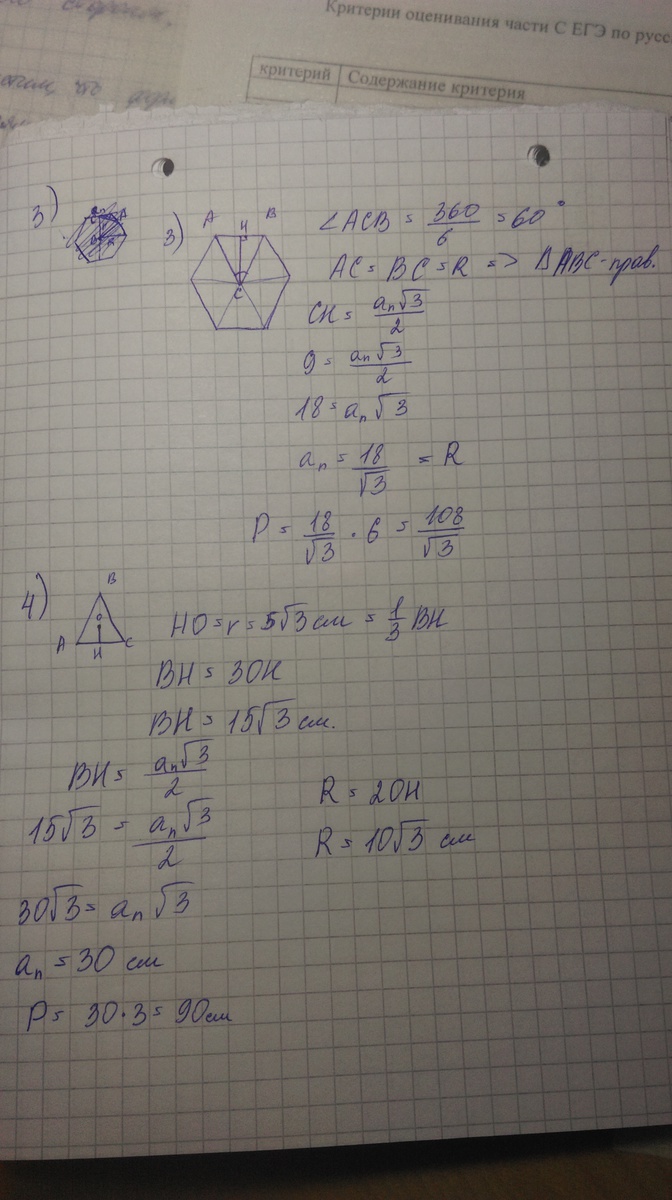 Критерии оценивания части С ЕГЭ по русс
критерий Содержание критерия
3)
3) A H B C
∠ACB = 360/6 = 60°
AC = BC = R => ΔABC - прав.
CH = aₙ√3/2
9 = aₙ√3/2
18 = aₙ√3
aₙ = 18/√3 = R
P = 18/√3 · 6 = 108/√3
4) B O A H C
HO = r = 5√3 см = 1/3 BH
BH = 3OH
BH = 15√3 см.
BH = aₙ√3/2
15√3 = aₙ√3/2
30√3 = aₙ√3
aₙ = 30 см
P = 30·3 = 90см
R = 2OH
R = 10√3 см